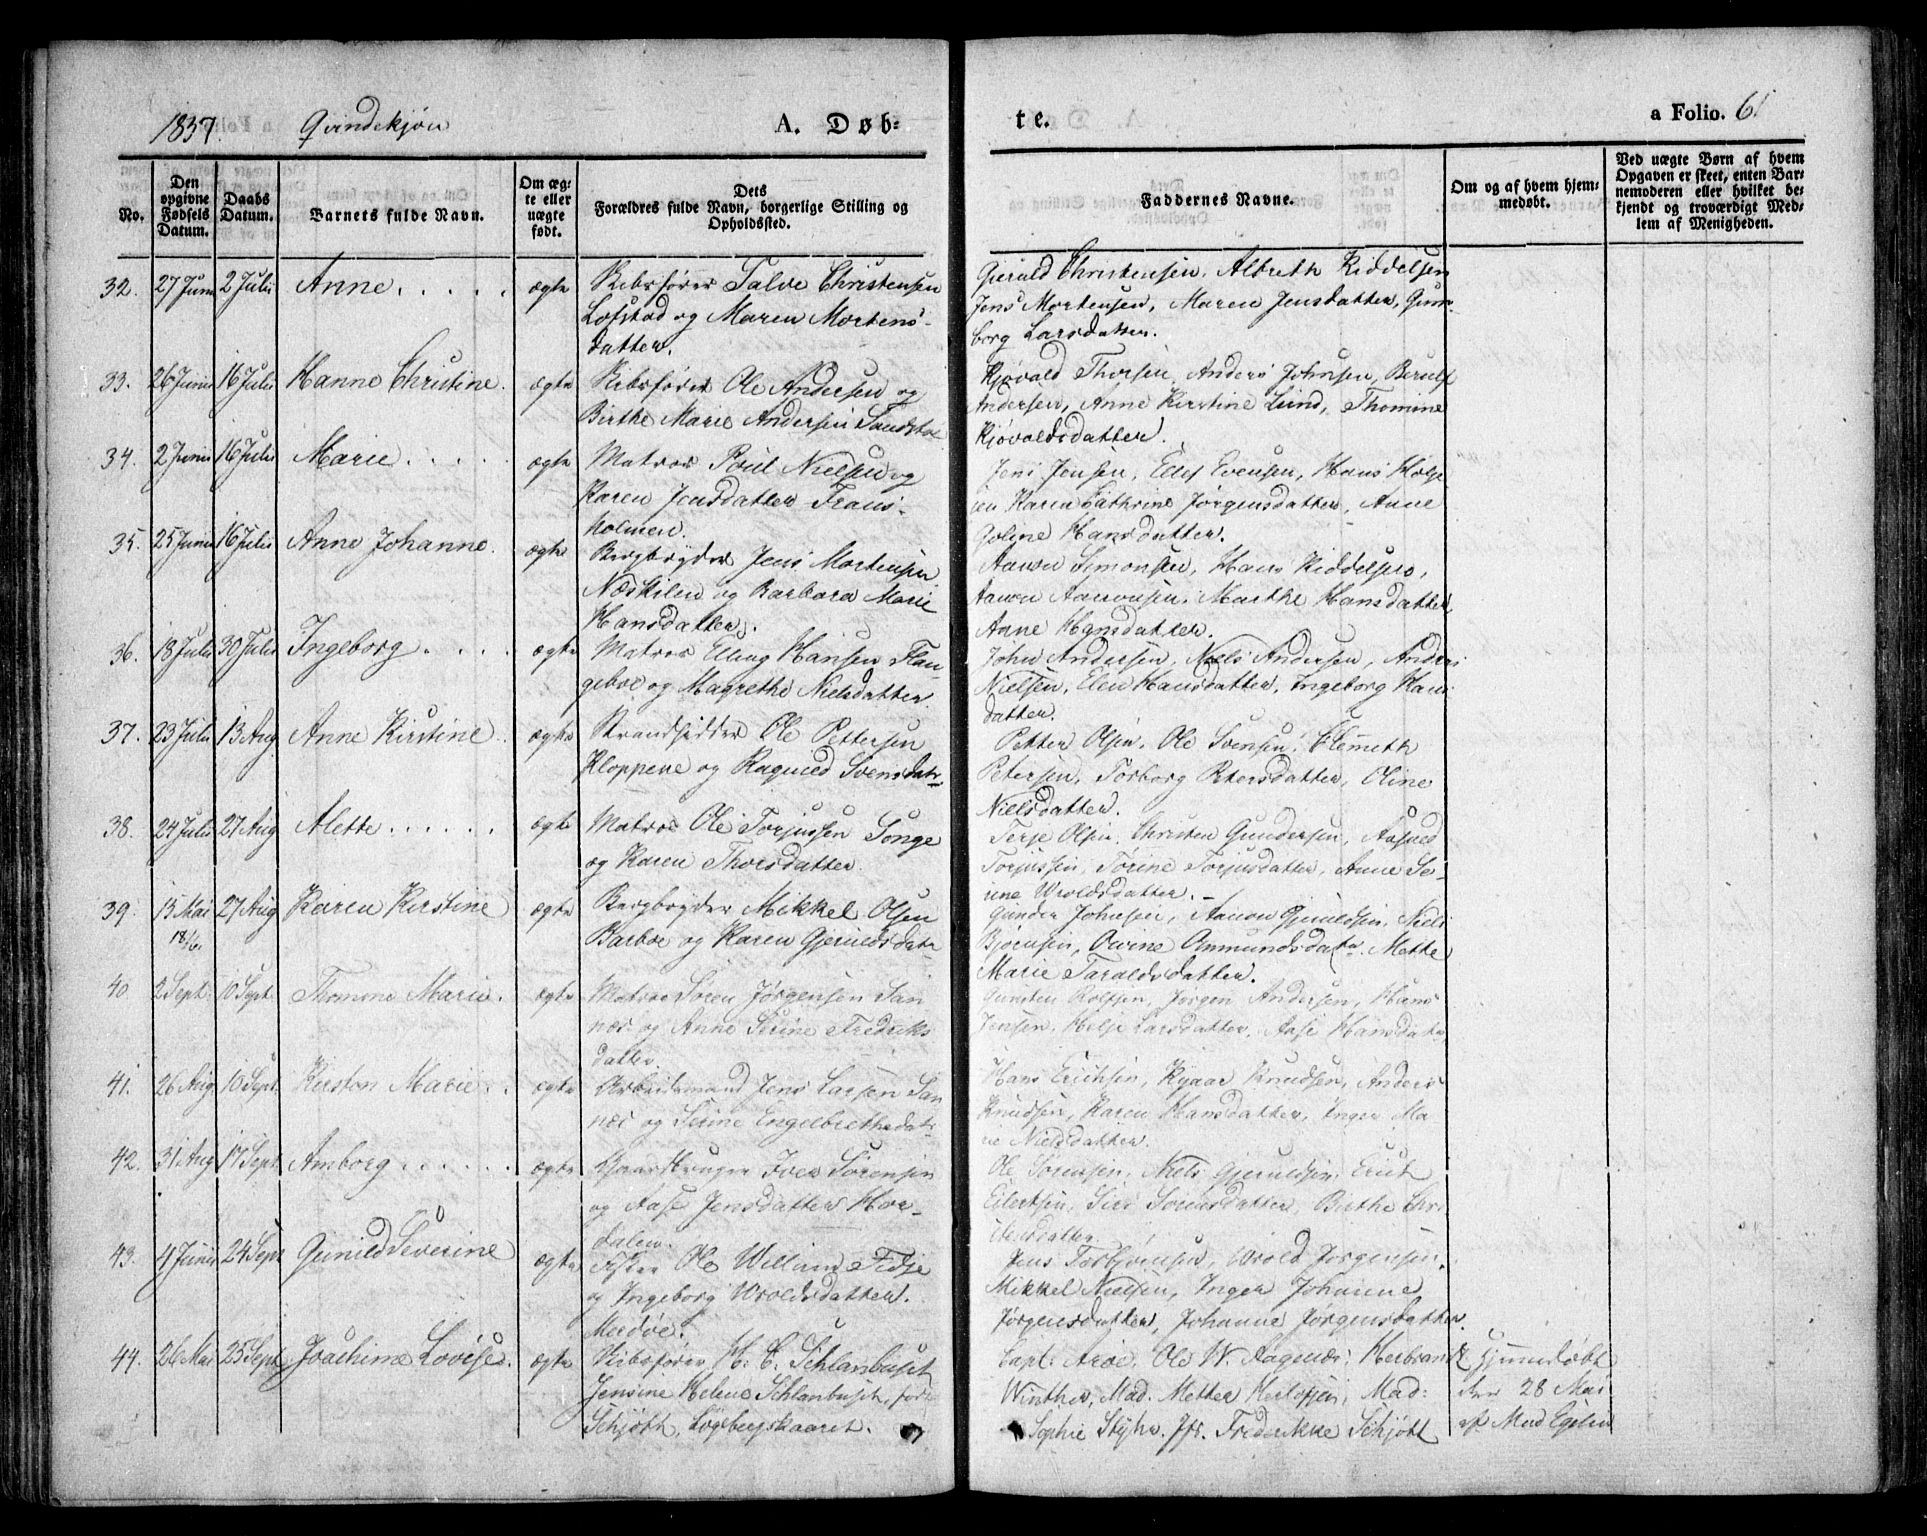 1837. Qvindekjøn
A. Døb=
te.
a Folio. 61
No.
Den opgivne Fødsels Datum.
Daabs Datum.
Barnets fulde Navn.
Om ægte eller uægte født.
Dets Forældres fulde Navn, borgerlige Stilling og Opholdssted.
Faddernes Navne.
Om og af hvem hjemmedøbt.
Ved uægte Børn af hvem Opgaven er skeet, enten Barnemoderen eller hvilket bekjendt og troværdigt Medlem af Menigheden.
32. 27 Juni 2 Julii Anne . . . . . ægte Skibsfører Salve Christensen
Løfstad og Maren Mortens-
datter.
Gieruld Christensen, Albreth Kiddelsen
Jens Mortensen, Maren Jensdatter, Gun-
borg Larsdatter.
33. 26 Junii 16 Julii Hanne Christine. ægte Skibsfører Ole Andersen og
Birthe Marie Andersen
Kjøvald Thorsen, Anders Johnsen, Berulf
Andersen, Anne Kirstine Lund, Thomine
Kjøvaldsdatter.
34. 2 Junii 16 Julii Marie . . . . ægte Matros Poul Nielsen og
Karen Jensdatter Frans-
holmen.
Jens Jensen, Ellef Evensen, Hans Holje
sen Karen Cathrine Jørgensdatter, Anne
Goline Hansdatter.
35. 25 Junii 16 Julii Anne Johanne. ægte Bergbryder Jens Mortensen
Næskilen og Barbara Marie
Hansdatter.
Aanon Simonsen, Hans Kiddelsen,
Aanon Aanonsen, Marthe Hansdatter,
Anne Hansdatter.
36. 18 Julii 30 Julii Ingeborg . . . . ægte Matros Elling Hansen Flan-
geboe og Magrethe Nielsdatter.
John Andersen, Niels Andersen, Anders
Nielsen, Elen Hansdatter, Ingeborg Hans
datter.
37. 23 Julii 13 Aug Anne Kirstine . ægte Strandsidder Ole Pettersen
Kloppene og Ragnild Svensdatr
Petter Olsen, Ole Svensen, Clemeth
Petersen, Torborg Petersdatter, Oline
Nielsdatter.
38. 24 Julii 27 Aug Alette . . . . . . ægte Matros Ole Torjussen Songe
og Karen Thorsdatter.
Terje Olsen, Christen Gundersen, Aasuld
Torjussen, Torine Torjusdatter, Anne Se-
rine Wroldsdatter.
39. 13 Mai 27 Aug Karen Kirstine ægte Bergbryder Mikkel Olsen
18/6. Barboe og Karen Gjeruldsdatr
Gunder Johnsen, Aanon Gjeruldsen, Niels
Bjørnsen, Anmundsdatr. Mette
Marie Taraldsdatter.
40. 2 Sept. 10 Sept. Thomine Marie. ægte Matros Søren Jørgensen San
næs og Anne Serine Fredriks
datter.
Rolfsen, Jørgen Andersen, Hans
Jensen, Helje Larsdatter, Aase Hansdatr
41. 26 Aug 10 Sept. Kirsten Marie . . ægte Arbeidsmand Jens Larsen San
næs og Serine Engelbrethsdatr
Hans Erichsen, Knudsen, Anders
Knudsen, Karen Hansdatter, Inger Ma-
rie Nielsdatter.
42. 31 Aug 17 Sept. Amborg . . . . . . ægte Gaardbruger Iver Sørensen
og Aase Jensdatter Hor-
dalen.
Ole Sørensen, Niels Gjeruldsen, Erich
Eilertsen, Siri Sørensdatter, Birthe Chri
stensdatter.
43. 4 Junii 24 Sept Gunild Severine ægte Fisker Ole Willum Fidje
og Ingeborg Wroldsdatter.
Merdøe.
Jens Torbjørnsen, Wrold Jørgensen,
Mikkel Nielsen, Inger Johanne
Jørgensdatter, Johanne Jørgensdatter.
44. 26 Mai 25 Sept. Joachime Lovise. ægte Skibsfører H. C. Schlanbusch
Jensine Helene Schlanbusch, født
Schjøth, Løgbergskaaret.
Capt: Arøe, Ole W. Aagenæs, Herbrandt
Winther, Mad. Mette Herlofsen, Mad:
Sophie Styhr, Jfr. Frederikke Schjøtt
Hjemmedøbt
den 28 Mai
af Mad Egelin